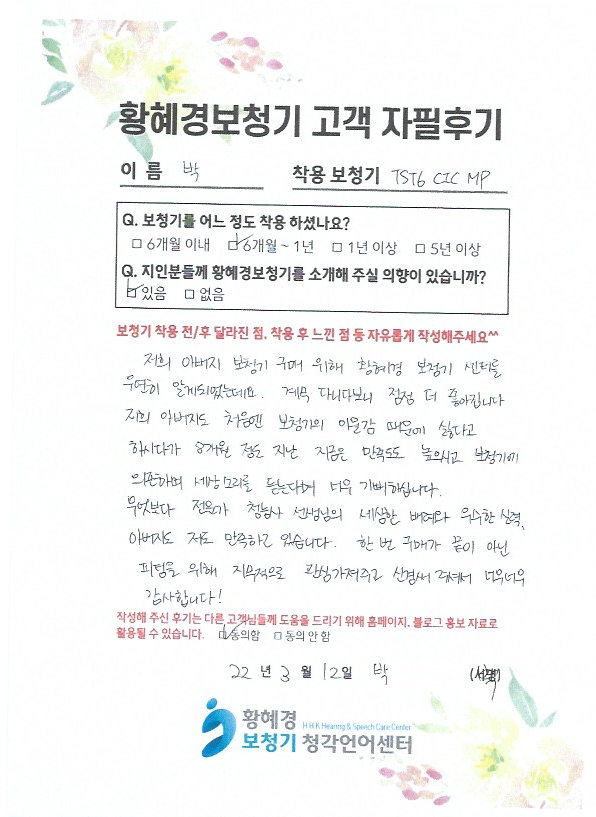 황혜경보청기 고객 자필후기
이 름 박 착용 보청기 TST6 CIC MP
Q. 보청기를 어느 정도 착용 하셨나요?
□ 6개월 이내 ☑ 6개월 ~ 1년 □ 1년 이상 □ 5년 이상
Q. 지인분들께 황혜경보청기를 소개해 주실 의향이 있습니까?
☑ 있음 □ 없음
보청기 착용 전/후 달라진 점, 착용 후 느낀 점 등 자유롭게 작성해주세요^^
저희 아버지 보청기 구매 위해 황혜경 보청기 센터를
우연히 알게되었는데요. 계속 다니다보니 점점 더 좋아집니다
저희 아버지도 처음엔 보청기의 이물감 때문에 싫다고
하시다가 8개월 정도 지난 지금은 만족도도 높으시고 보청기에
의존하며 세상 소리를 듣는다며 너무 기뻐하십니다.
무엇보다 전문가 청능사 선생님의 세심한 배려와 우수한 실력,
아버지도 저도 만족하고 있습니다. 한 번 구매가 끝이 아닌
피팅을 위해 지속적으로 관심가져주고 신경써 주셔서 너무너무
감사합니다!
작성해 주신 후기는 다른 고객님들께 도움을 드리기 위해 홈페이지, 블로그 홍보 자료로
활용될 수 있습니다. ☑ 동의함 □ 동의 안 함
22 년 3 월 12 일 박 (서명)
황혜경 H.H.K Hearing & Speech Care Center
보청기 청각언어센터